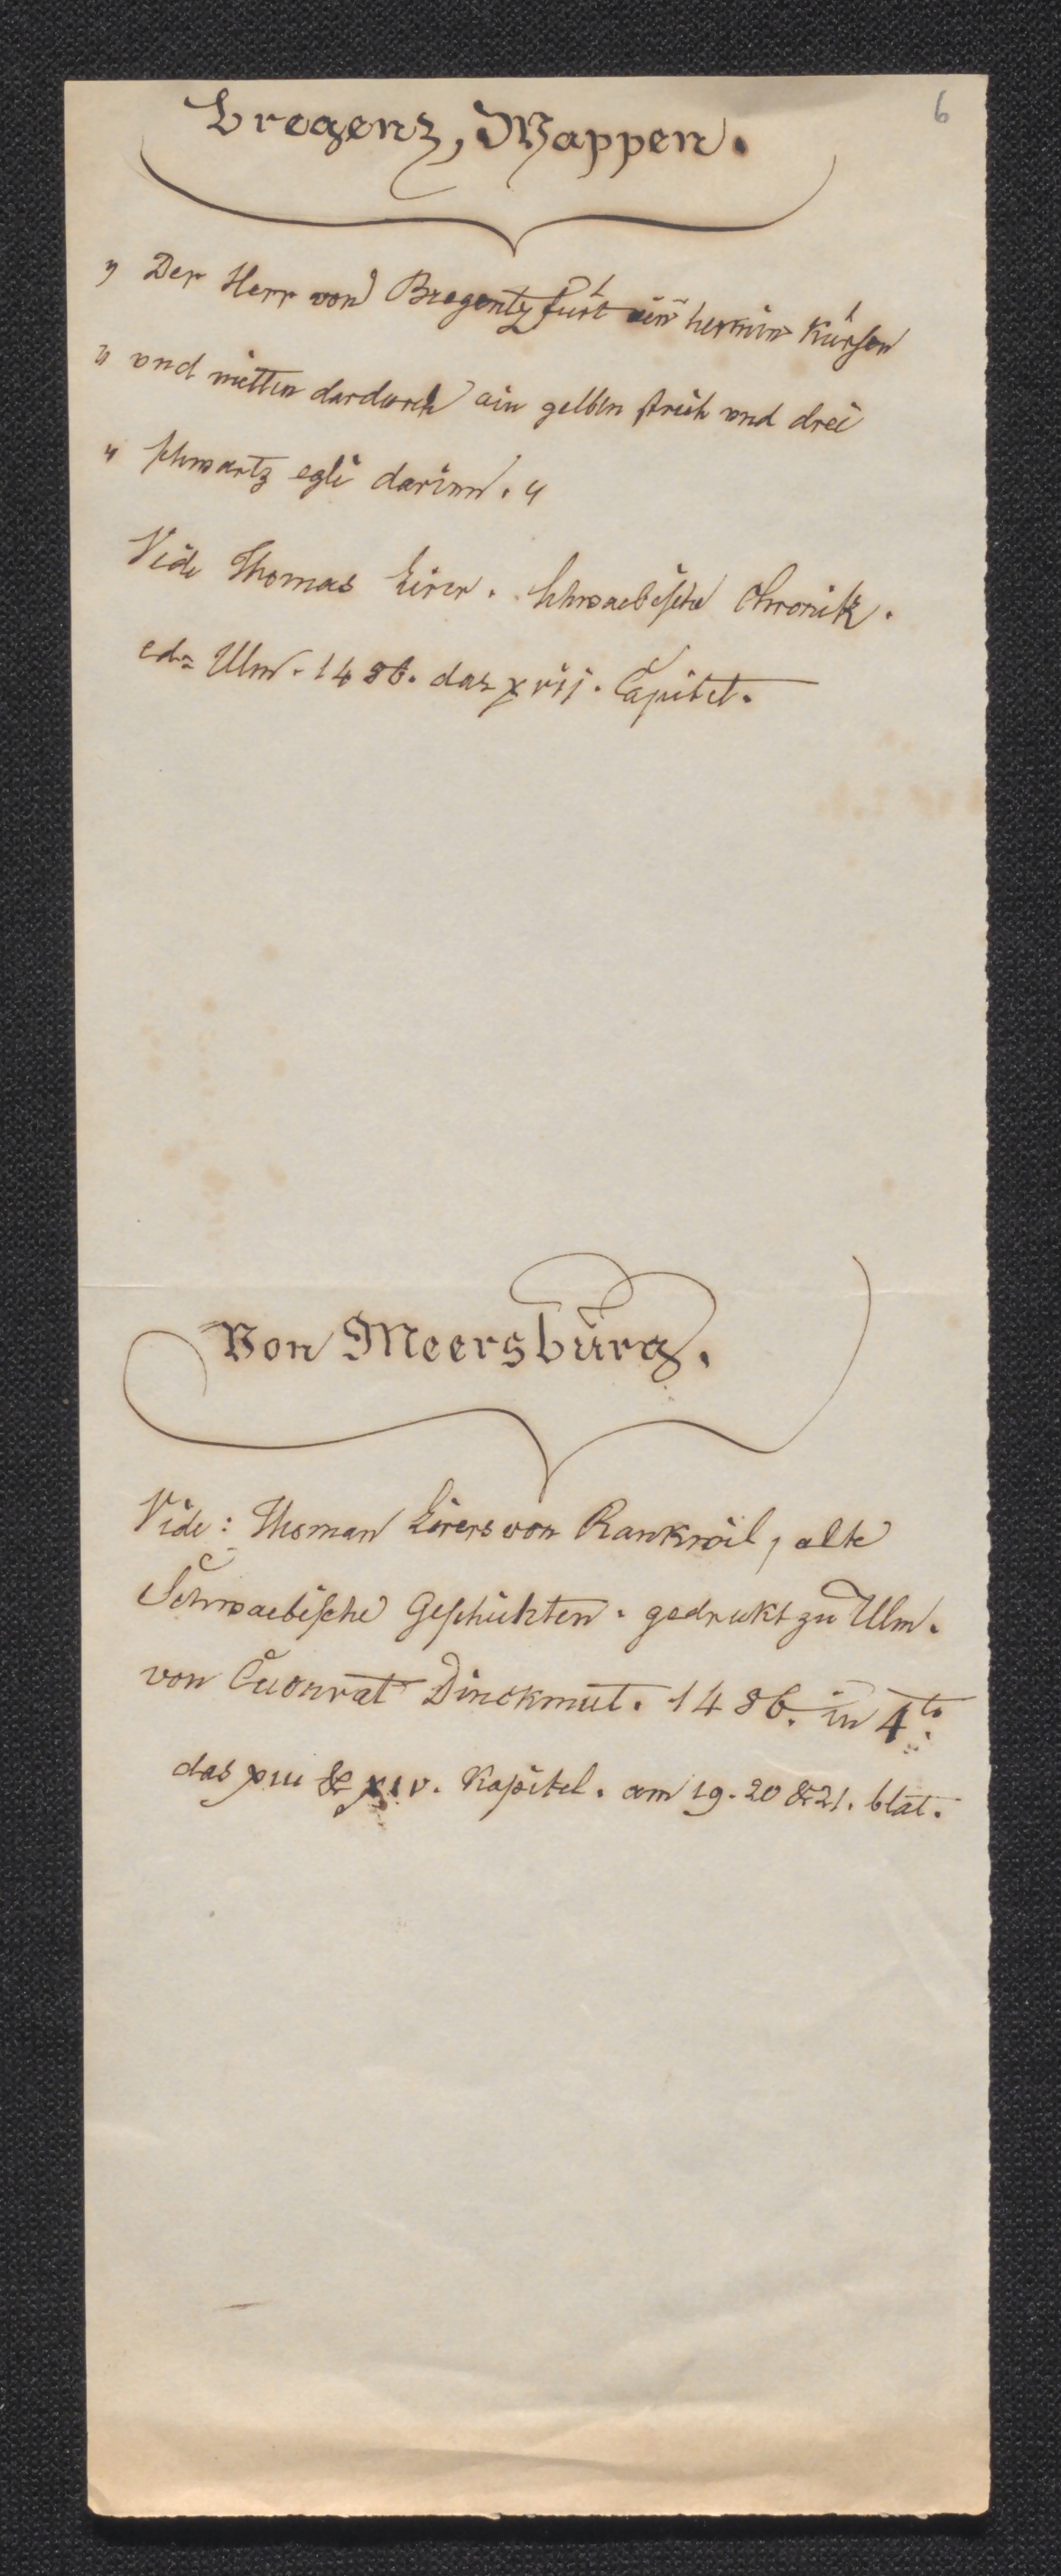 6
Bregenz, Wappen.
„ Der Herr von Bregentz fürt ein hermin kürsen
„ vnd mitten dardurch ain gelben strich vnd drei
„ schwartz egli darinn. “
Vide Thomas Lirer. Schwaebische Chronik.
ed= Ulm. 1486. das xvij. Capitel.
Von Meersburg.
Vide: Thoman Lirers von Rankwil, alte
Schwaebische Geschichten. gedrukt zu Ulm.
von Cuonrat Dinckmut. 1486. in 4to.
das xiii & xiv. Kapitel. am 19. 20 & 21. blat.